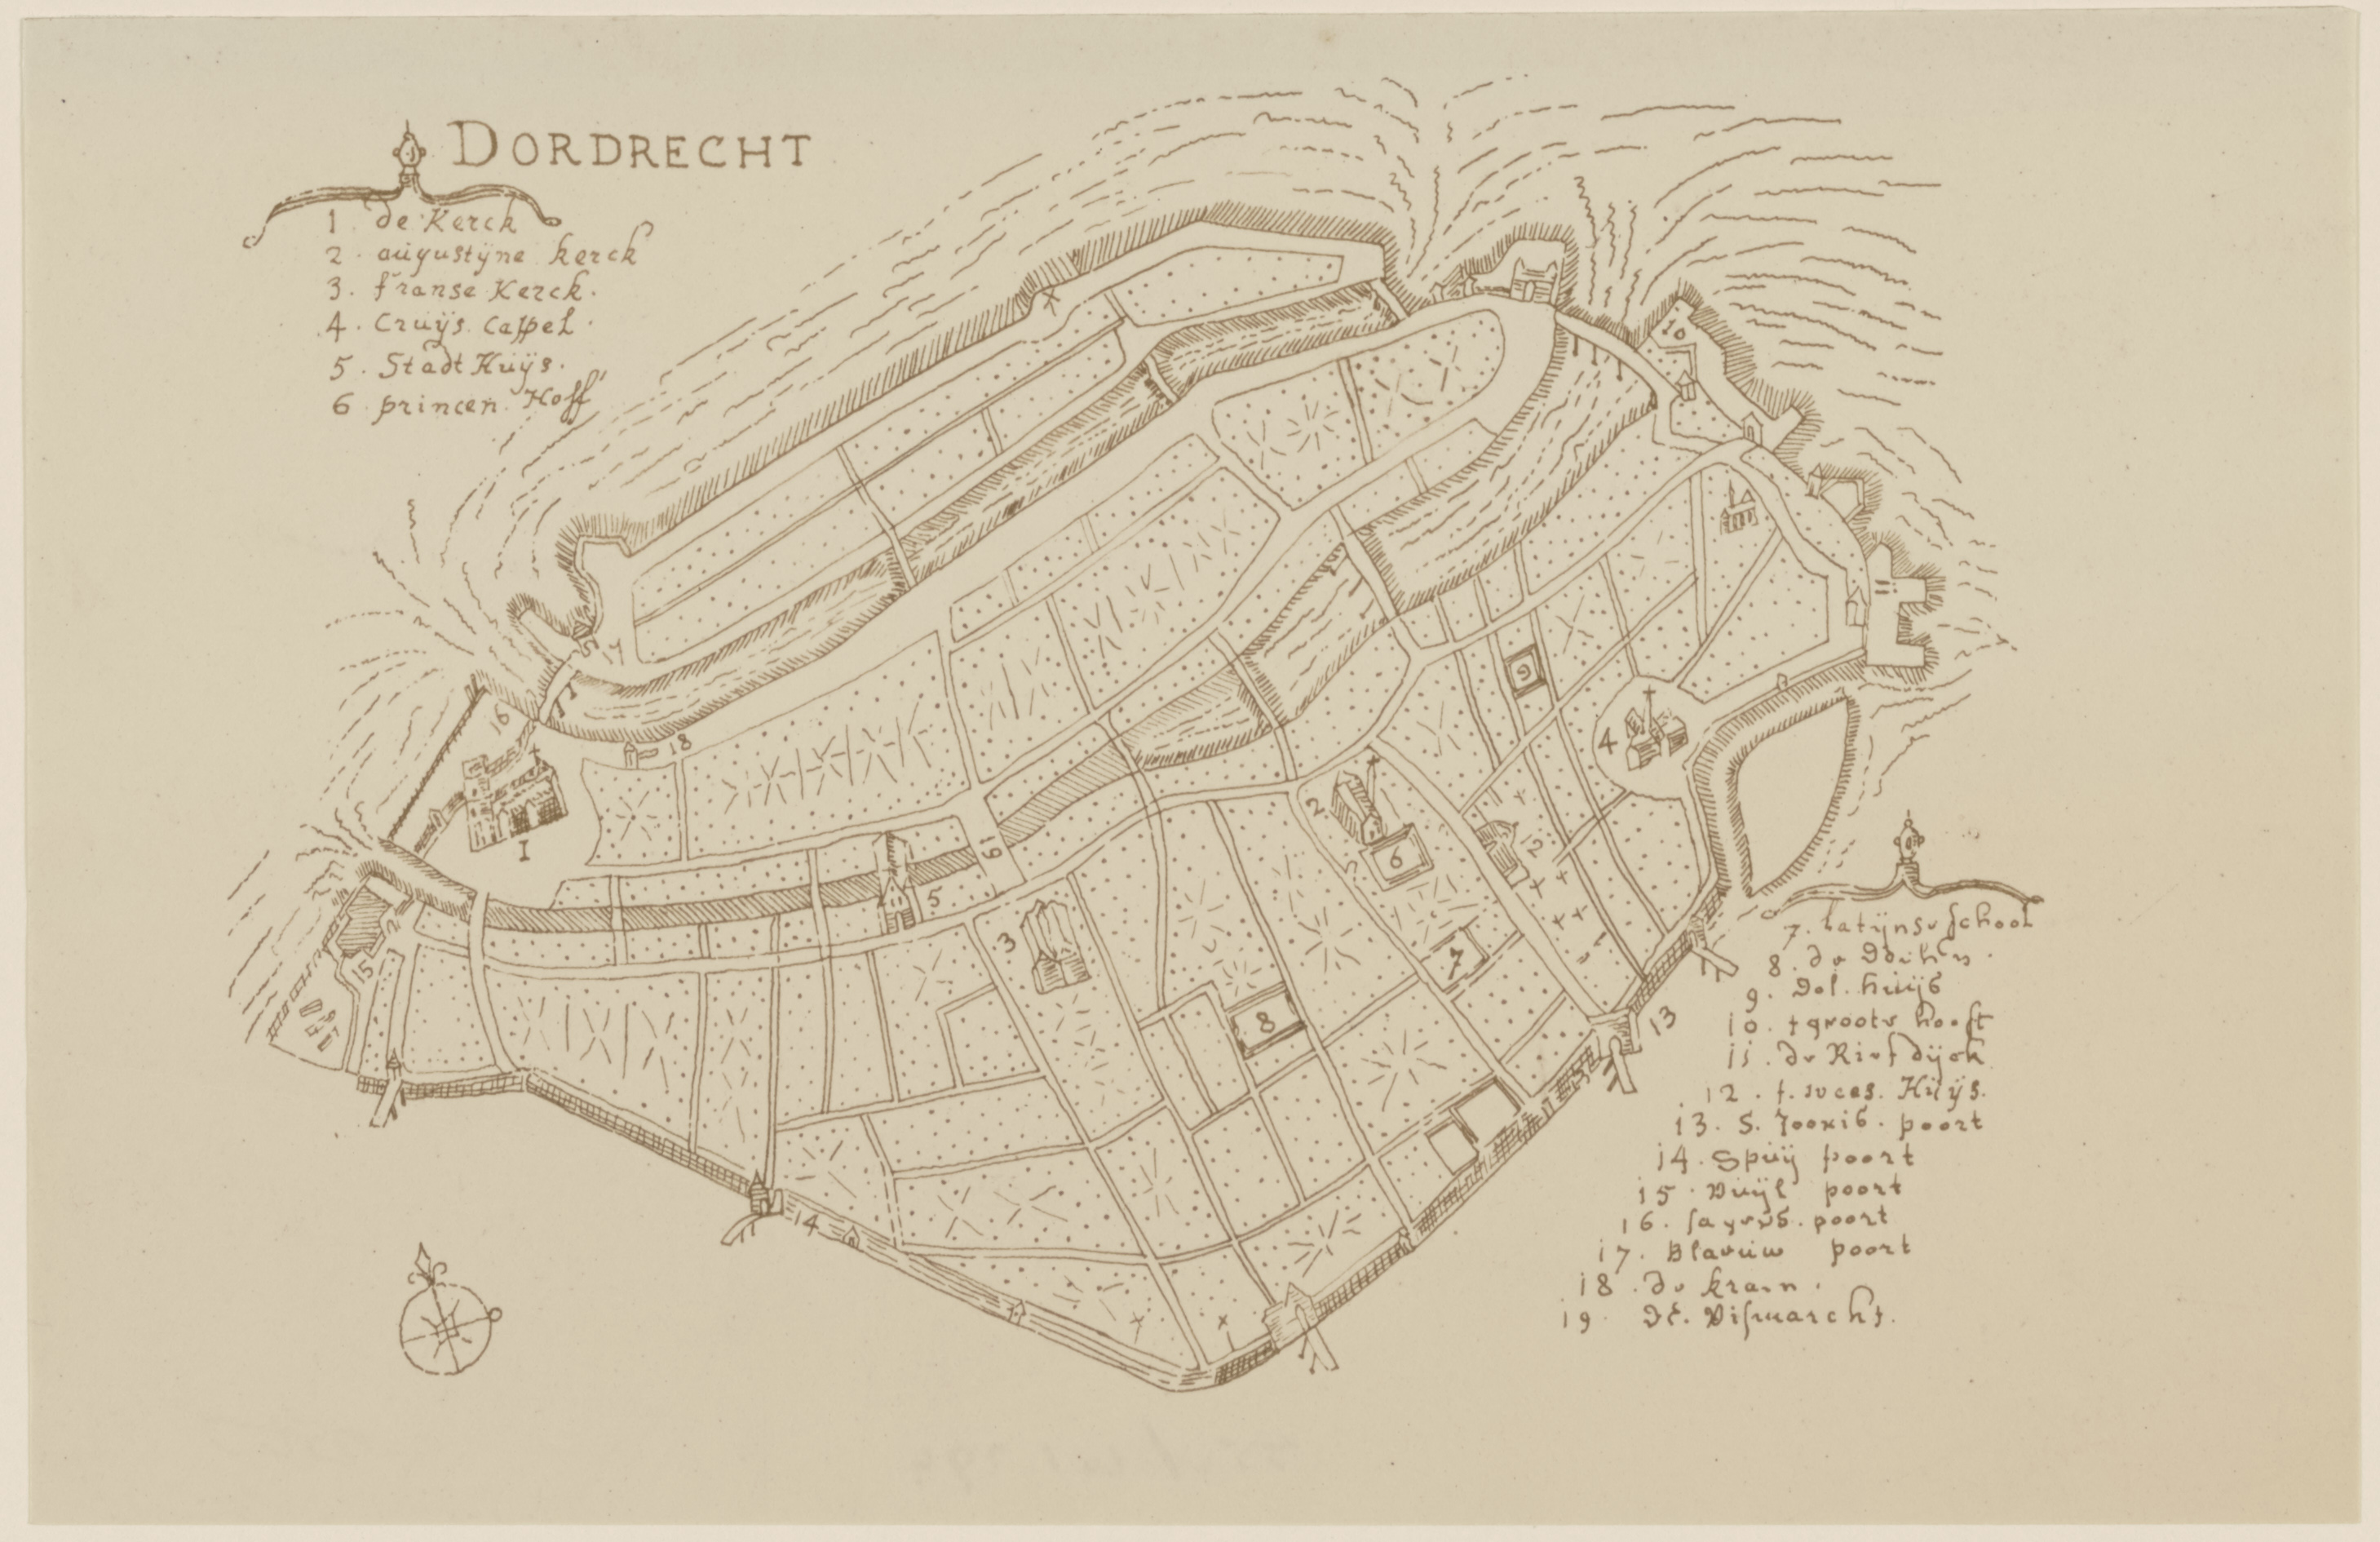 DORDRECHT
1 de Kerck
2 augustÿne kerck
3. franse Kerck.
4. Cruÿs Cappel.
5. Stadt Huÿs.
6 princen Hoff
10
17
16
18
9
4
1
19
2
6
12
5
3
7
15
8
13
14
7. Latÿnse School
8. de
9. Dol. huijs
10. tgroote hooft
11. de Rietdÿck
12. Huÿs.
13. S. Jooris. poort
14. Spuÿ poort
15. Vuÿl poort
16. poort
17. Blauuw poort
18. de kraan.
19. DE. Vismarcht.